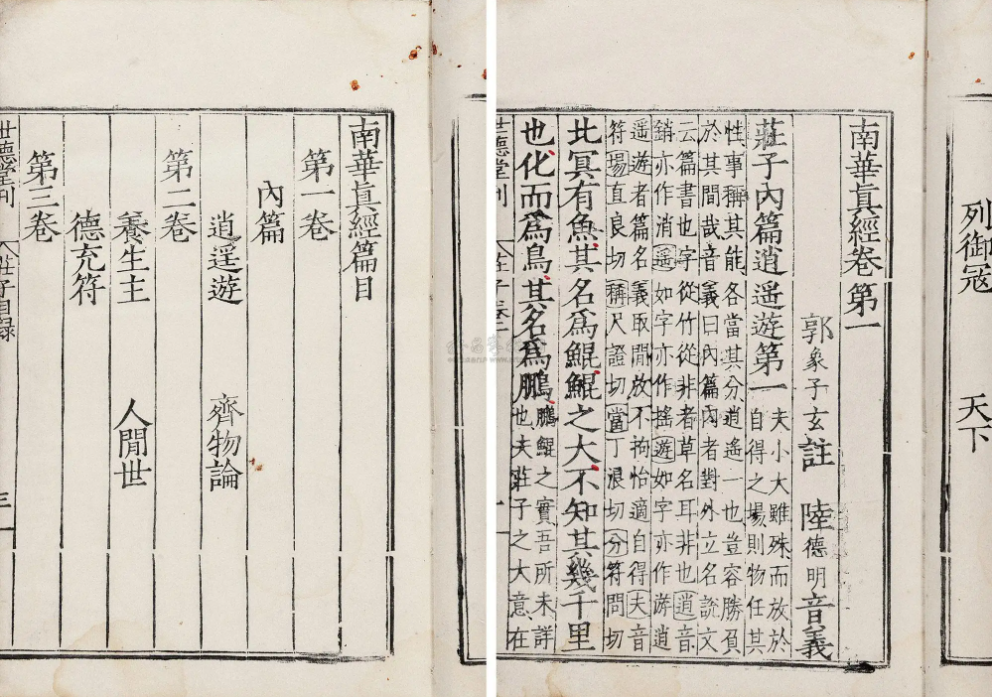 南華眞經篇目
第一卷
內篇
逍遥遊 齊物論
第二卷
養生主 人閒世
德充符
第三卷
世德堂刊 莊子目録 三
列御寇 天下
南華眞經卷第一
郭象子玄註 陸德明音義
莊子內篇逍遥遊第一 夫小大雖殊而放於
自得之場則物任其
性事稱其能各當其分逍遥一也豈容勝負
於其間哉音義曰內篇內者對外立名說文
云篇書也字從竹從非者草名耳非也逍音
銷亦作消遥如字亦作搖遊如字亦作游逍
遥遊者篇名義取閒放不拘怡適自得夫音
符場直良切稱尺證切當丁浪切分符問切
北冥有魚其名爲鯤鯤之大不知其幾千里
也化而爲鳥其名爲鵬 鵬鯤之實吾所未詳
也夫莊子之大意在
世德堂刊 莊子卷一 一